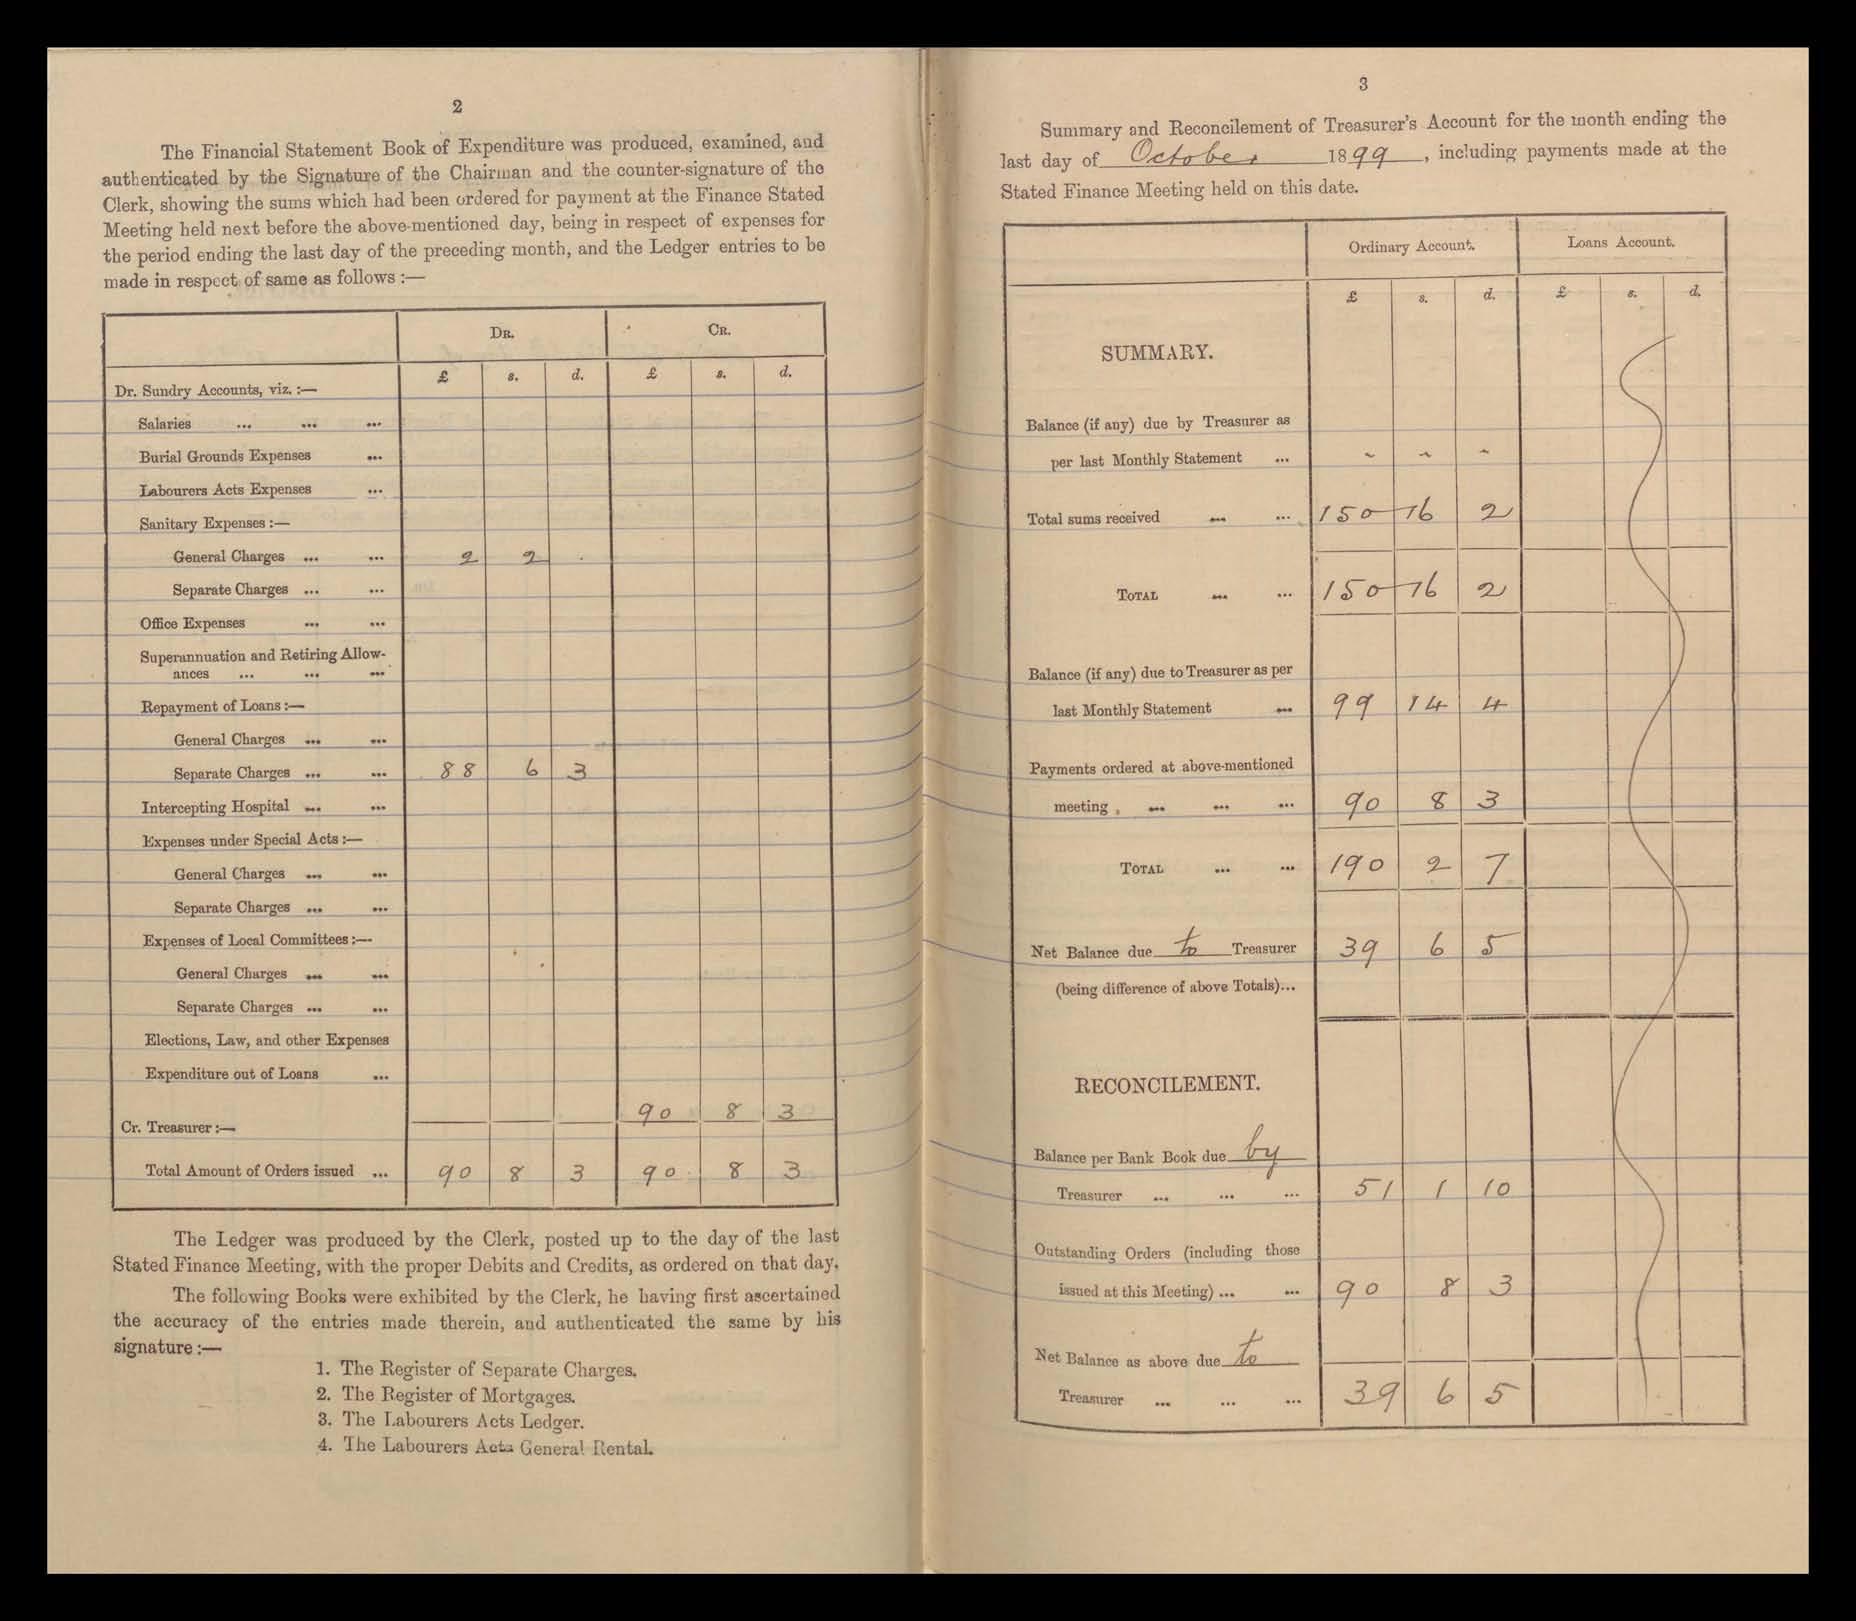 2
The Financial Statement Book of Expenditure was produced, examined, and
authenticated by the Signature of the Chairman and the counter-signature of the
Clerk, showing the sums which had been ordered for payment at the Finance Stated
Meeting held next before the above-mentioned day, being in respect of expenses for
the period ending the last day of the preceding month, and the Ledger entries to be
made in respect of same as follows :—
DR. CR.
£ s. d. £ s. d.
Dr. Sundry Accounts, viz. :—
Salaries ... ... ...
Burial Grounds Expenses ...
Labourers Acts Expenses ...
Sanitary Expenses :—
General Charges ... ... 2 2 .
Separate Charges ... ...
Office Expenses ... ...
Superannuation and Retiring Allow-
ances ... ... ...
Repayment of Loans :—
General Charges ... ...
Separate Charges ... ... 88 6 3
Intercepting Hospital ... ...
Expenses under Special Acts :—
General Charges ... ...
Separate Charges ... ...
Expenses of Local Committees :—
General Charges ... ...
Separate Charges ... ...
Elections, Law, and other Expenses
Expenditure out of Loans ...
90 8 3
Cr. Treasurer :—
Total Amount of Orders issued ... 90 8 3 90 8 3
The Ledger was produced by the Clerk, posted up to the day of the last
Stated Finance Meeting, with the proper Debits and Credits, as ordered on that day.
The following Books were exhibited by the Clerk, he having first ascertained
the accuracy of the entries made therein, and authenticated the same by his
signature :—
1. The Register of Separate Charges.
2. The Register of Mortgages.
3. The Labourers Acts Ledger.
4. The Labourers Acts General Rental.
3
Summary and Reconcilement of Treasurer's Account for the month ending the
last day of October 1899, including payments made at the
Stated Finance Meeting held on this date.
Ordinary Account. Loans Account.
£ s. d. £ s. d.
SUMMARY.
Balance (if any) due by Treasurer as
per last Monthly Statement ... ~ ~ ~
Total sums received ... ... 150 16 2
TOTAL ... ... 150 16 2
Balance (if any) due to Treasurer as per
last Monthly Statement ... 99 14 4
Payments ordered at above-mentioned
meeting . ... ... ... 90 8 3
TOTAL ... ... 190 2 7
Net Balance due to Treasurer 39 6 5
(being difference of above Totals)...
RECONCILEMENT.
Balance per Bank Book due by
Treasurer ... ... ... 51 1 10
Outstanding Orders (including those
issued at this Meeting) ... ... 90 8 3
Net Balance as above due to
Treasurer ... ... ... 39 6 5